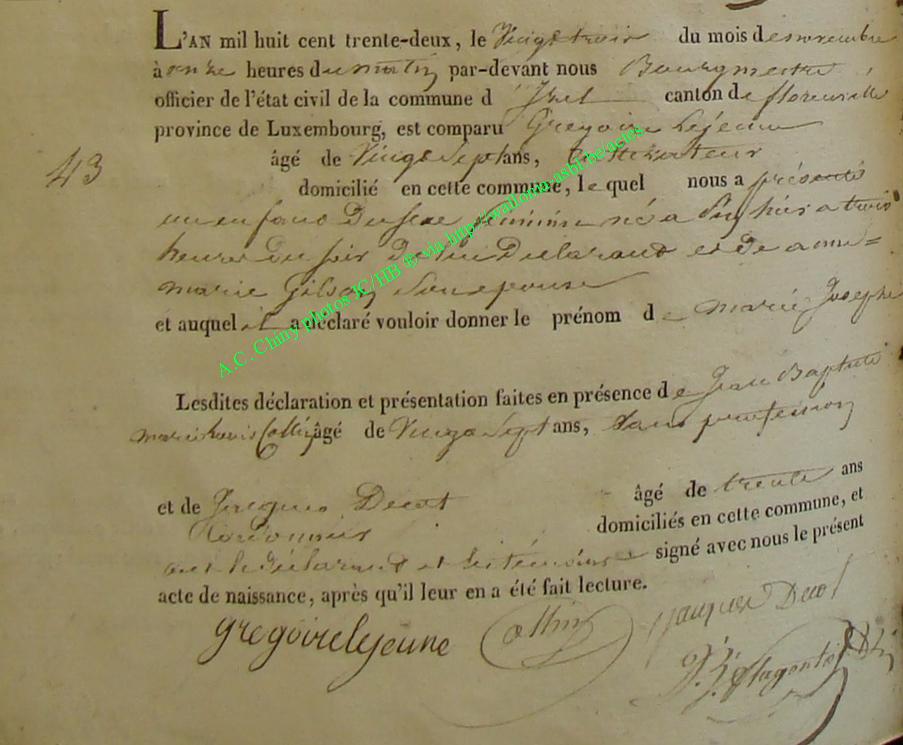 L'AN mil huit cent trente-deux, le Vingt trois du mois de novembre
à onze heures du matin par-devant nous Bourgmestre
officier de l'état civil de la commune d'Izel canton de florenville
province de Luxembourg, est comparu Gregoire Lejeune
43
âgé de Vingt Sept ans,
domicilié en cette commune, le quel nous a présenté
un enfant du sexe feminin né a Izel hier a trois
heures du soir De lui Declarant et de anne=
marie Gilson Son epouse
et auquel il a déclaré vouloir donner le prénom de marie Josephe
Lesdites déclaration et présentation faites en présence de Jean Baptiste
marie Louis Collin âgé de Vingt Sept ans, Sans profession
et de Jacques Decot âgé de trente ans
Cordonnier domiciliés en cette commune, et
ont le declarant et les témoins signé avec nous le présent
acte de naissance, après qu'il leur en a été fait lecture.
gregoire lejeune Collin Jacques Decot
A.C. Chiny photos JC/HB ® via http://wallonia-asbl.be/actes